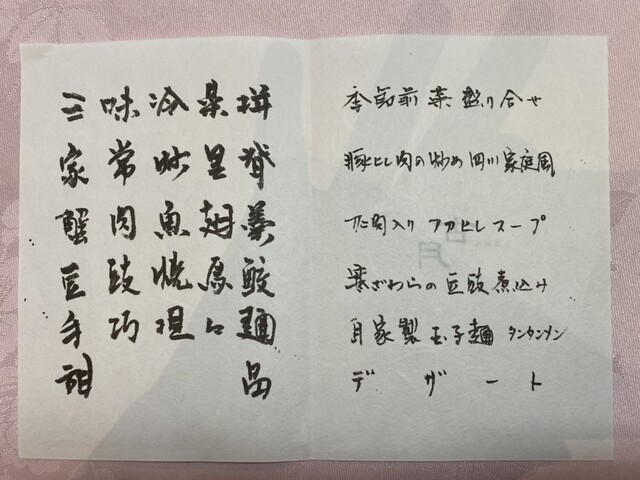 三味冷菜拼
家常炒里脊
蟹肉魚翅羹
豆豉焼馬鮫
手巧担々麺
甜品
季節前菜盛り合せ
豚ヒレ肉の炒め四川家庭風
カニ肉入りフカヒレスープ
寒ざわらの豆豉煮込み
自家製玉子麺 タンタンメン
デザート